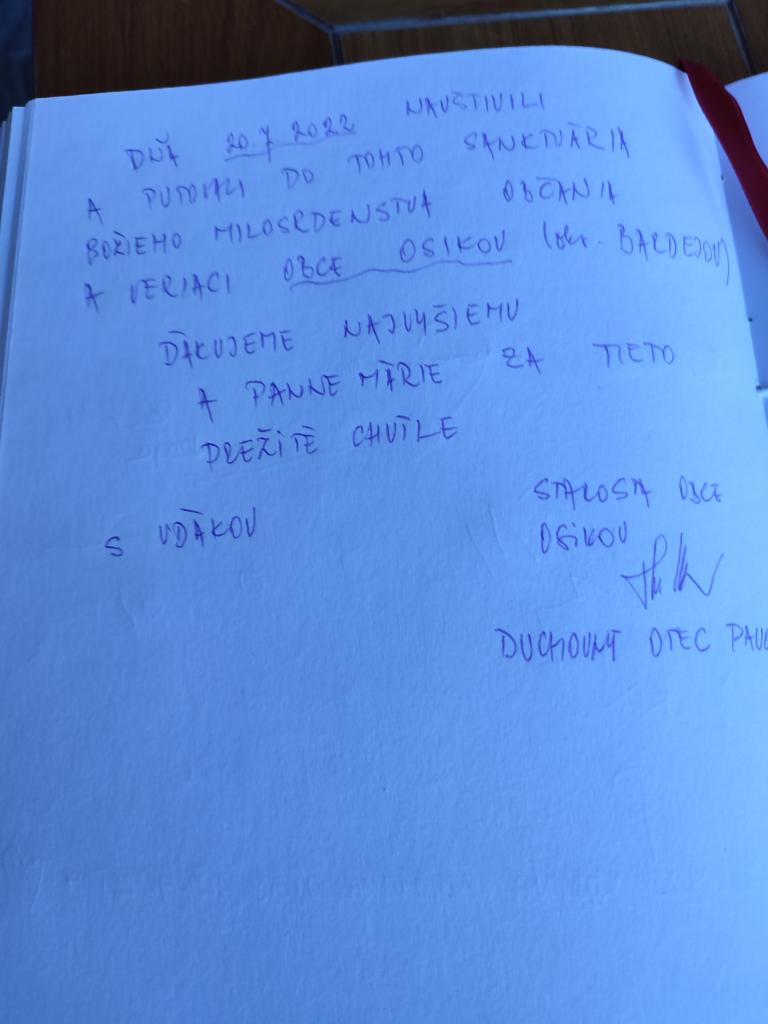 DŇA 20.7.2022 NAVŠTIVILI
A PUTOVALI DO TOHTO SANKTUÁRIA
BOŽIEHO MILOSRDENSTVA OBČANIA
A VERIACI OBCE OSIKOV (okr. BARDEJOV)
ĎAKUJEME NAJVYŠŠIEMU
A PANNE MÁRIE ZA TIETO
PREŽITÉ CHVÍLE
S VĎAKOV
STAROSTA OBCE
OSIKOV
DUCHOVNÝ OTEC